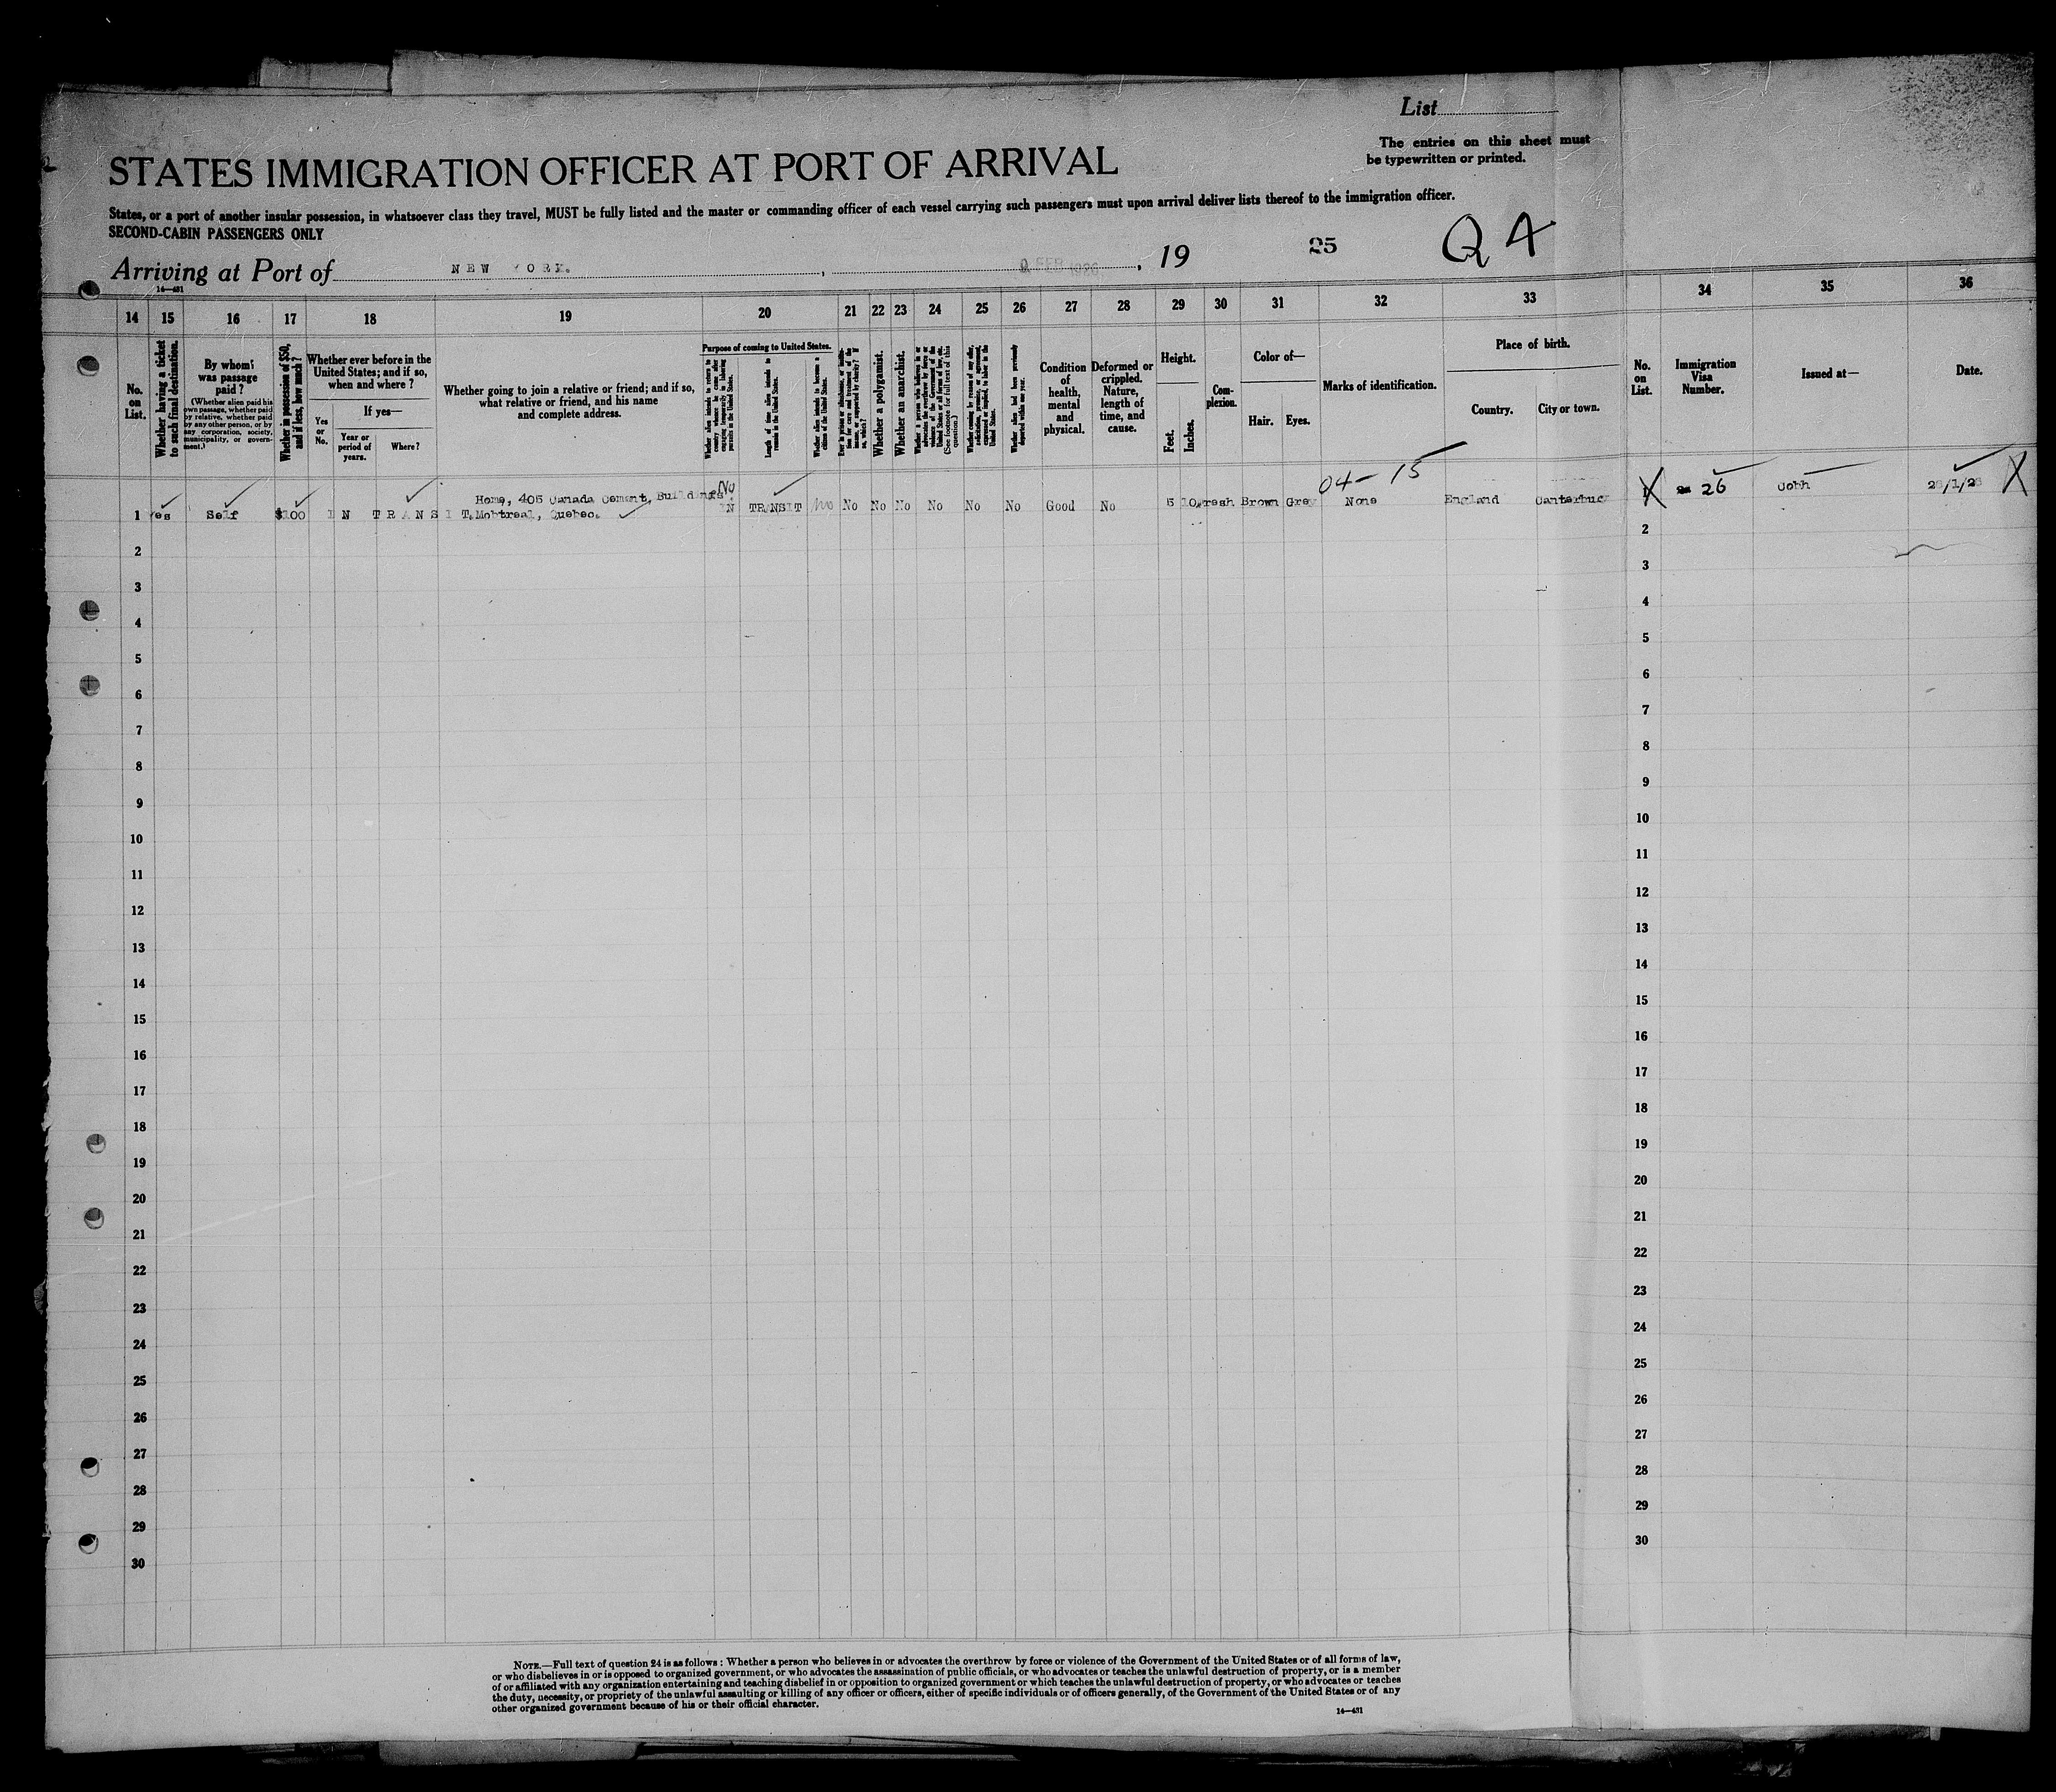 List
The entries on this sheet must
be typewritten or printed.
STATES IMMIGRATION OFFICER AT PORT OF ARRIVAL
States, or a port of another insular possession, in whatsoever class they travel, MUST be fully listed and the master or commanding officer of each vessel carrying such passengers must upon arrival deliver lists thereof to the immigration officer.
SECOND-CABIN PASSENGERS ONLY
25 Q A
Arriving at Port of NEW YORK. , FEB , 19
14—431
14 15 16 17 18 19 20 21 22 23 24 25 26 27 28 29 30 31 32 33 34 35 36
No. on List.
Whether having a ticket to such final destination.
By whom was passage paid?
(Whether alien paid his own passage, whether paid by relative, whether paid by any other person, or by any corporation, society, municipality, or government.)
Whether in possession of $50, and if less, how much?
Whether ever before in the United States; and if so, when and where?
Yes or No.
If yes—
Year or period of years.
Where?
Whether going to join a relative or friend; and if so, what relative or friend, and his name and complete address.
Purpose of coming to United States.
Whether alien intends to return to country whence he came after engaging temporarily in laboring pursuits in the United States.
Length of time alien intends to remain in the United States.
Whether alien intends to become a citizen of the United States.
Whether a polygamist.
Whether an anarchist.
Condition of health, mental and physical.
Deformed or crippled. Nature, length of time, and cause.
Height.
Feet. Inches.
Complexion.
Color of—
Hair. Eyes.
Marks of identification.
Place of birth.
Country. City or town.
No. on List.
Immigration Visa Number.
Issued at—
Date.
04 - 15
Home, 405 Canada Cement, Buildings No
1 Yes Self $100 IN TRANSIT, Mobtreal, Quebec. IN TRANSIT No No No No No No No Good No 5 10 Fresh Brown Grey None England Canterbury 1 26 Cobh
2 2
3 3
4 4
5 5
6 6
7 7
8 8
9 9
10 10
11 11
12 12
13 13
14 14
15 15
16 16
17 17
18 18
19 19
20 20
21 21
22 22
23 23
24 24
25 25
26 26
27 27
28 28
29 29
30 30
NOTE.—Full text of question 24 is as follows: Whether a person who believes in or advocates the overthrow by force or violence of the Government of the United States or of all forms of law,
or who disbelieves in or is opposed to organized government, or who advocates the assassination of public officials, or who advocates or teaches the unlawful destruction of property, or is a member
of or affiliated with any organization entertaining and teaching disbelief in or opposition to organized government or which teaches the unlawful destruction of property, or who advocates or teaches
the duty, necessity, or propriety of the unlawful assaulting or killing of any officer or officers, either of specific individuals or of officers generally, of the Government of the United States or of any
other organized government because of his or their official character.
14—431